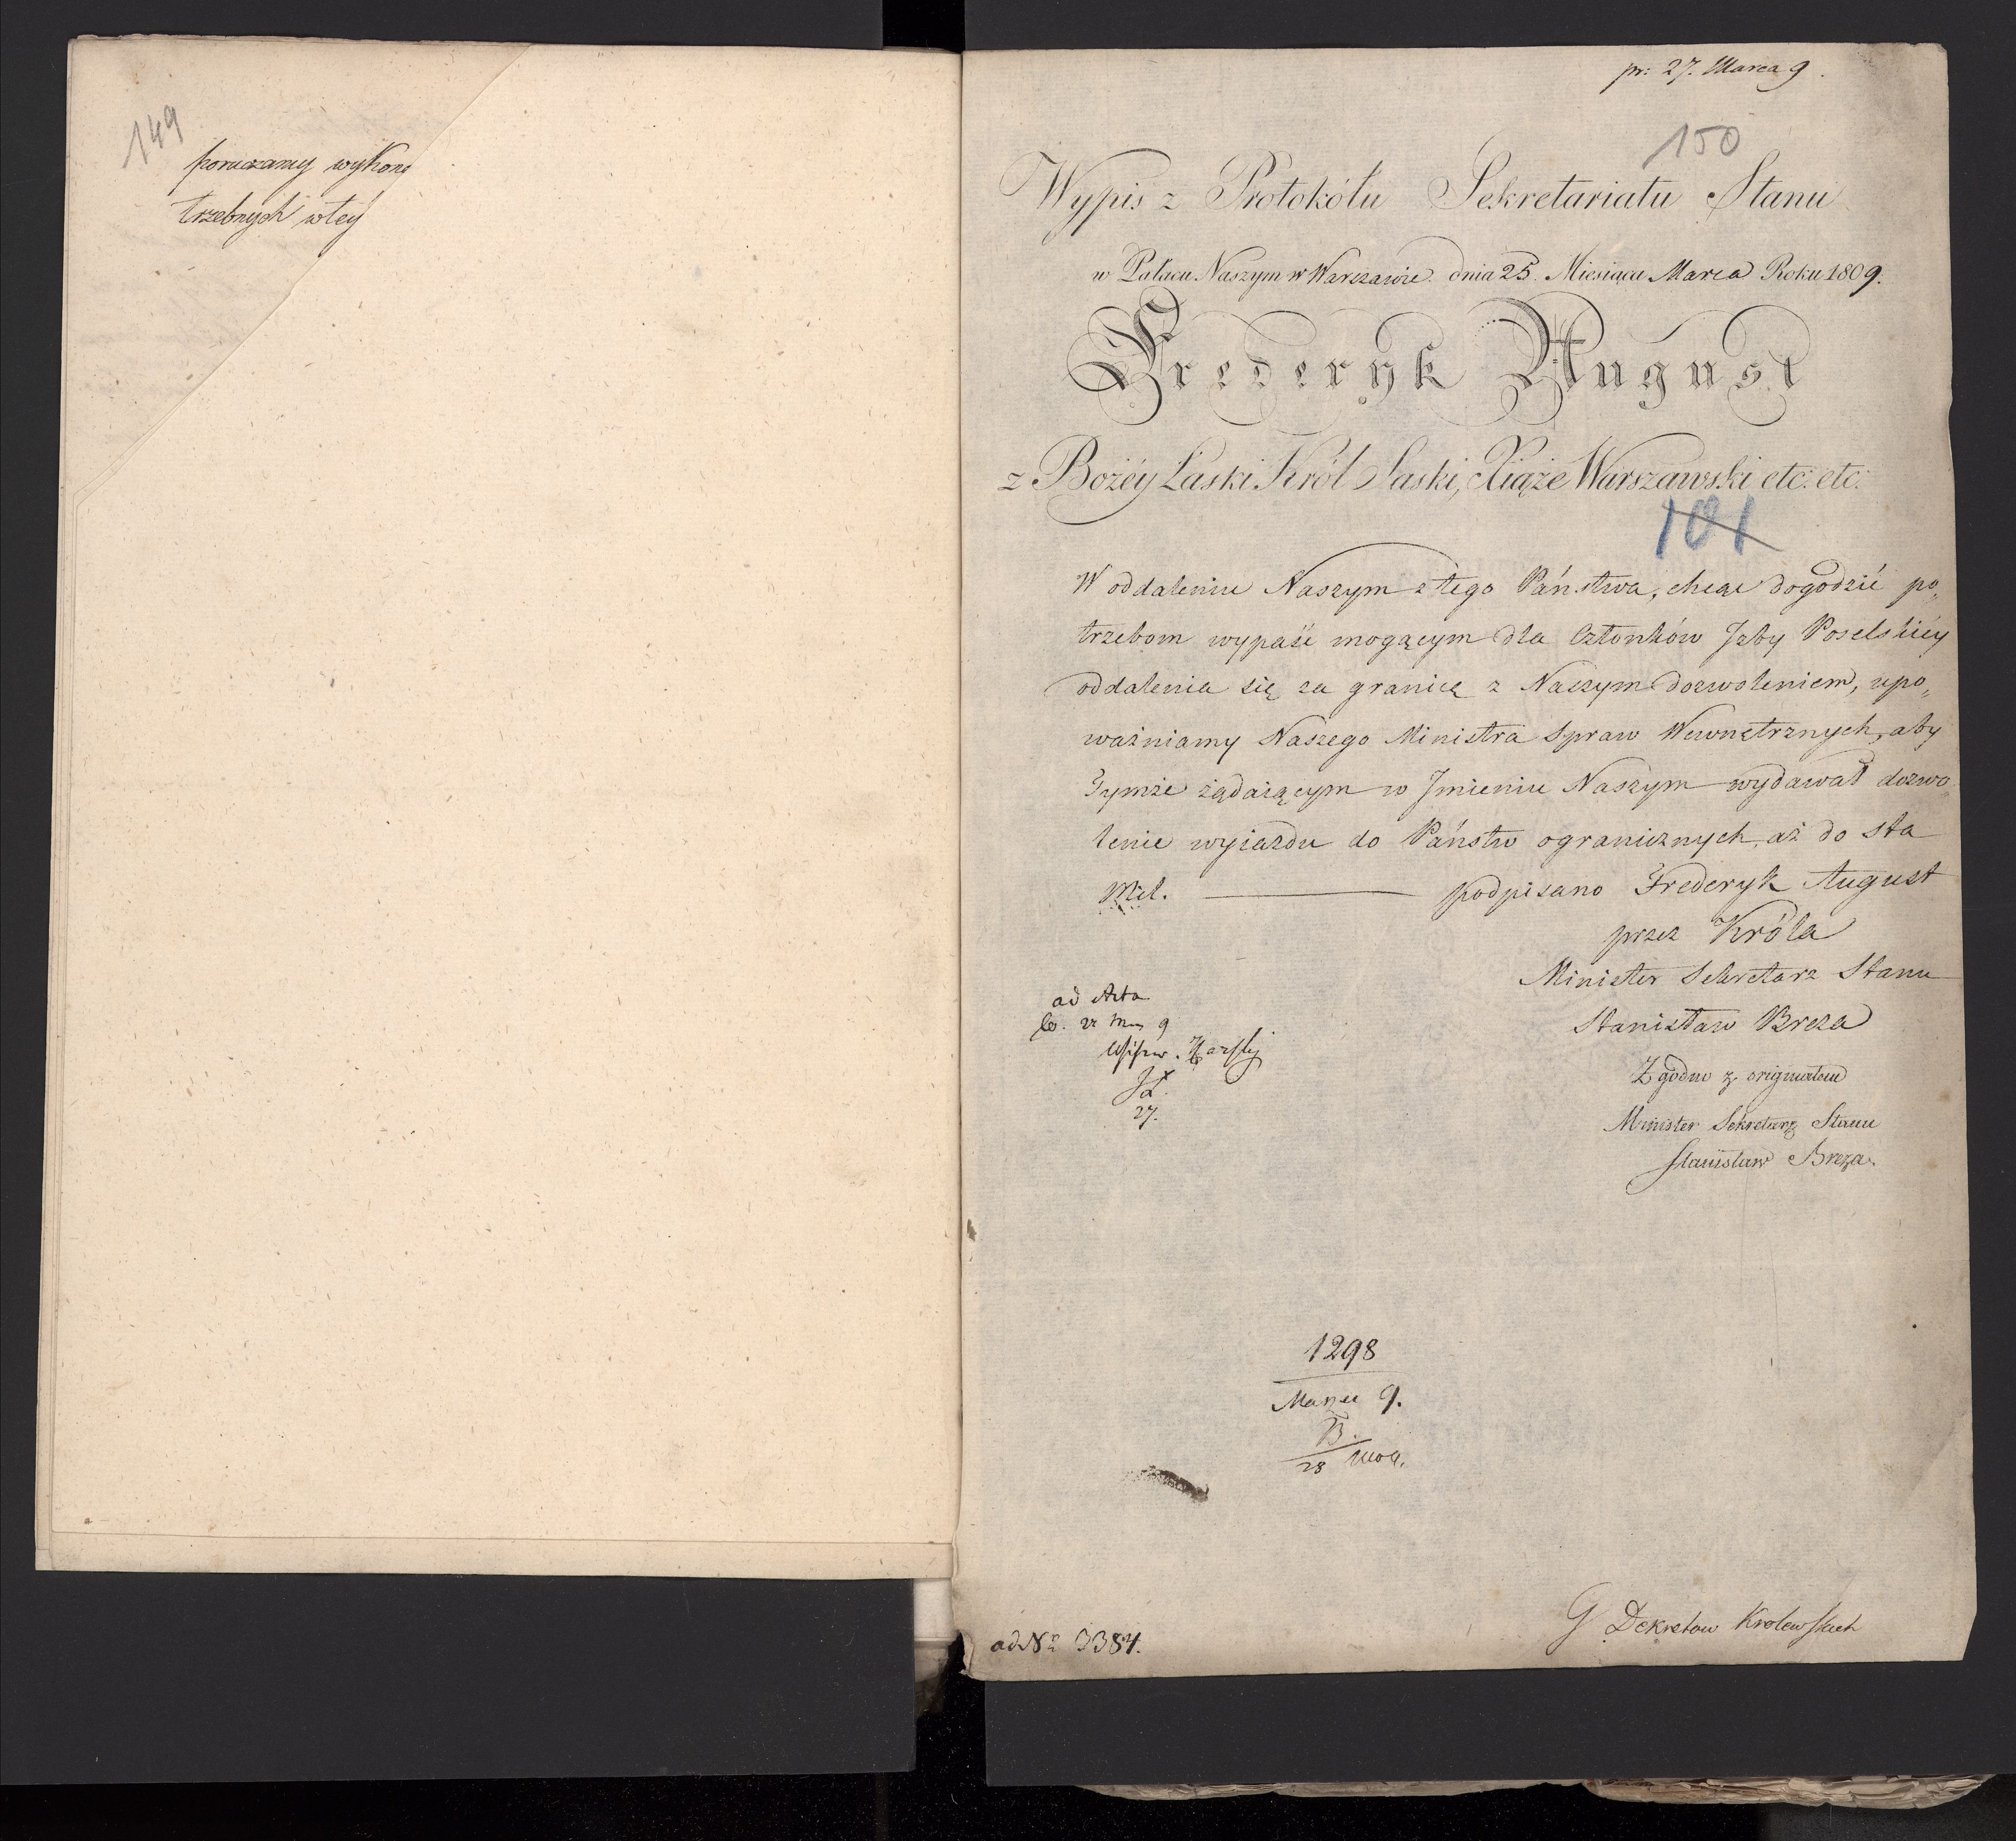 149
poruczamy wykona
trzebnych w tey
pr: 27. Marca 9.
150
Wypis z Protokółu Sekretariatu Stanu
w Pałacu Naszym w Warszawie dnia 25. Miesiąca Marca Roku 1809.
Frederyk August
z Bożéy Łaski Król Saski, Xiąże Warszawski etc: etc:
101
W oddaleniu Naszym z tego Państwa, chcąc dogodzić po„
trzebom wypaść mogącym dla Członków Izby Poselskiéy
oddalenia się za granicę z Naszym dozwoleniem, upo„
ważniamy Naszego Ministra Spraw Wewnętrznych, aby
Tymże żądaiącym w Jmieniu Naszym wydawał dozwo„
lenie wyiazdu do Państw ogranicznych, aż do sta
Mil. podpisano Frederyk August
przez Króla
Minister Sekretarz Stanu
Stanisław Breza
Zgodno z originałem
Minister Sekretarz Stanu
Stanisław Breza.
ad Acta
27.
1298
Marca 9.
B.
28
ad Nro 3384.
G Dekretow Krolewskich